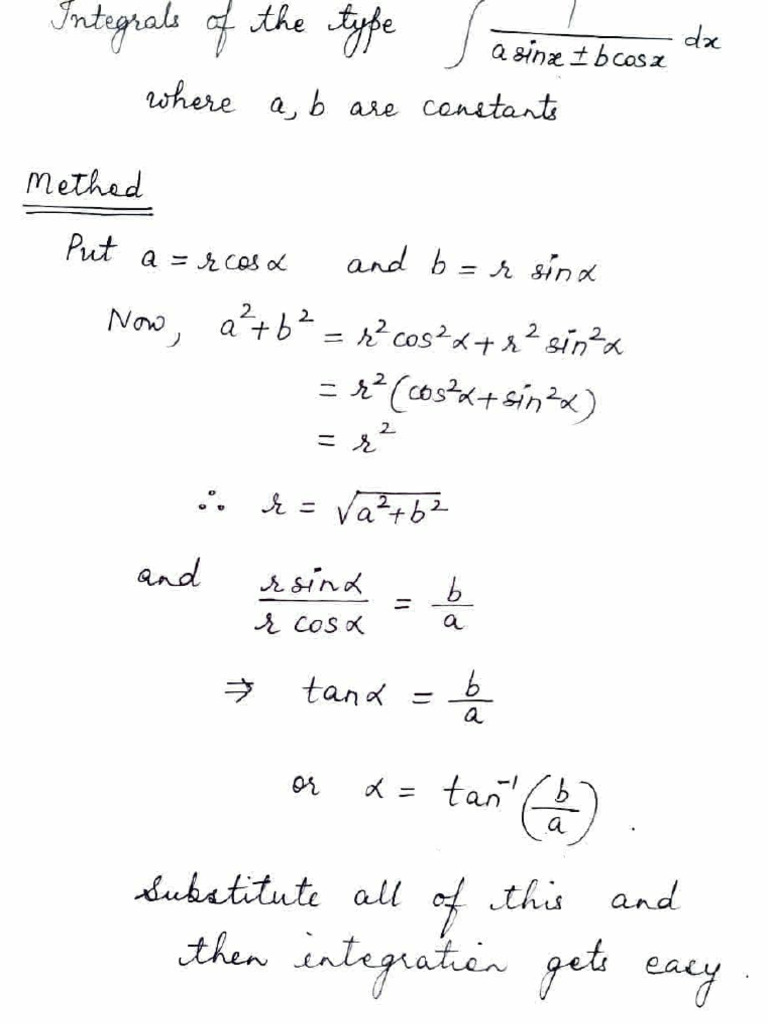 Integrals of the type ∫ 1/(a sinx ± b cosx) dx
where a, b are constants
Method
Put a = r cosα and b = r sinα
Now, a²+b² = r²cos²α + r² sin²α
= r²(cos²α + sin²α)
= r²
∴ r = √(a²+b²)
and r sinα / r cosα = b/a
⇒ tanα = b/a
or α = tan⁻¹(b/a).
Substitute all of this and
then integration gets easy.